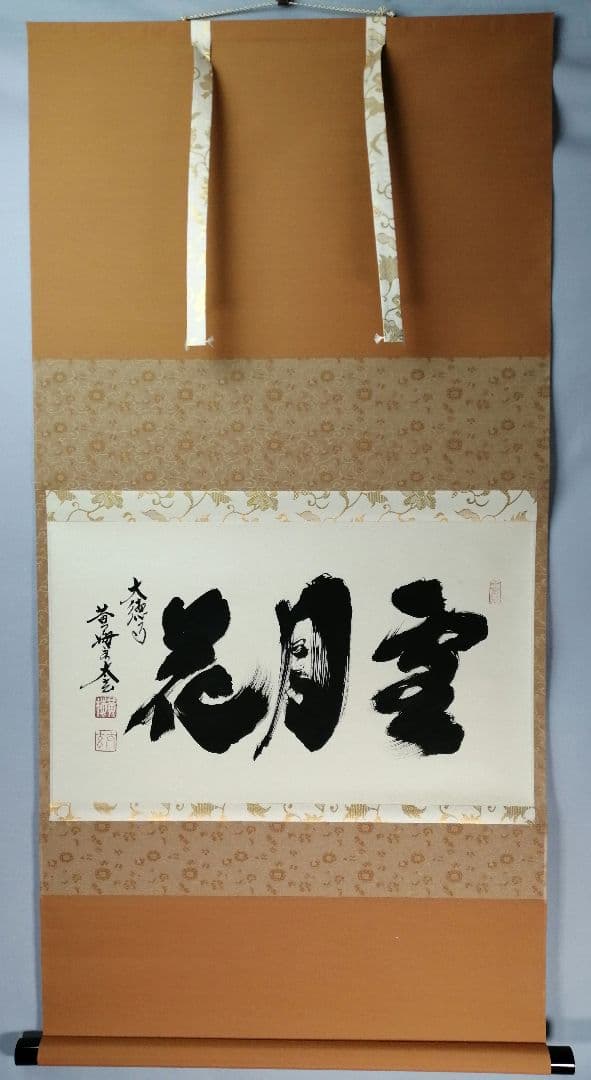 雪月花
大徳寺
黄梅太玄